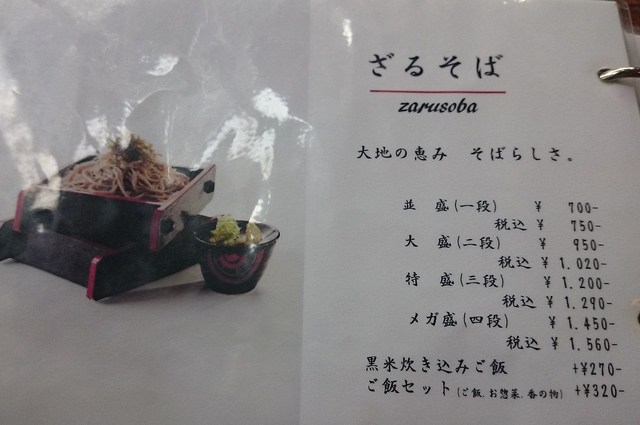 ざるそば
zarusoba
大地の恵み そばらしさ。
並 盛(一段) ¥ 700-
税込 ¥ 750-
大 盛(二段) ¥ 950-
税込 ¥ 1.020-
特 盛(三段) ¥ 1.200-
税込 ¥ 1.290-
メガ盛(四段) ¥ 1.450-
税込 ¥ 1.560-
黒米炊き込みご飯 +¥270-
ご飯セット(ご飯.お惣菜.香の物) +¥320-